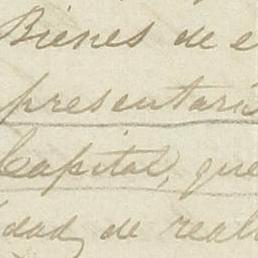 Bienes de e
presentaris
Capital, que
idad, de real